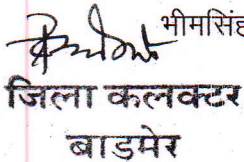 भीमसिंह
जिला कलक्टर
बाडमेर